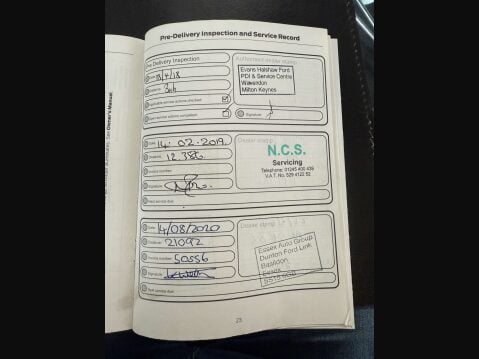 Pre-Delivery Inspection and Service Record
Pre-Delivery Inspection
Date 18/4/18
Authorised dealer stamp
Evans Halshaw Ford
PDI & Service Centre
Wavendon
Milton Keynes
Applicable service actions checked
Signature
Date 14. 02. 2019.
Odometer 12.386.
Invoice number
Signature
Next service due:
Dealer stamp
N.C.S.
Servicing
Telephone: 01245 400 439
V.A.T. No. 529 4122 52
Date 14/08/2020
Odometer 21092
Invoice number 50556
Signature
Next service due:
Dealer stamp
Essex Auto Group
Dunton Ford Link
Basildon
Essex
23
See Owner's Manual.